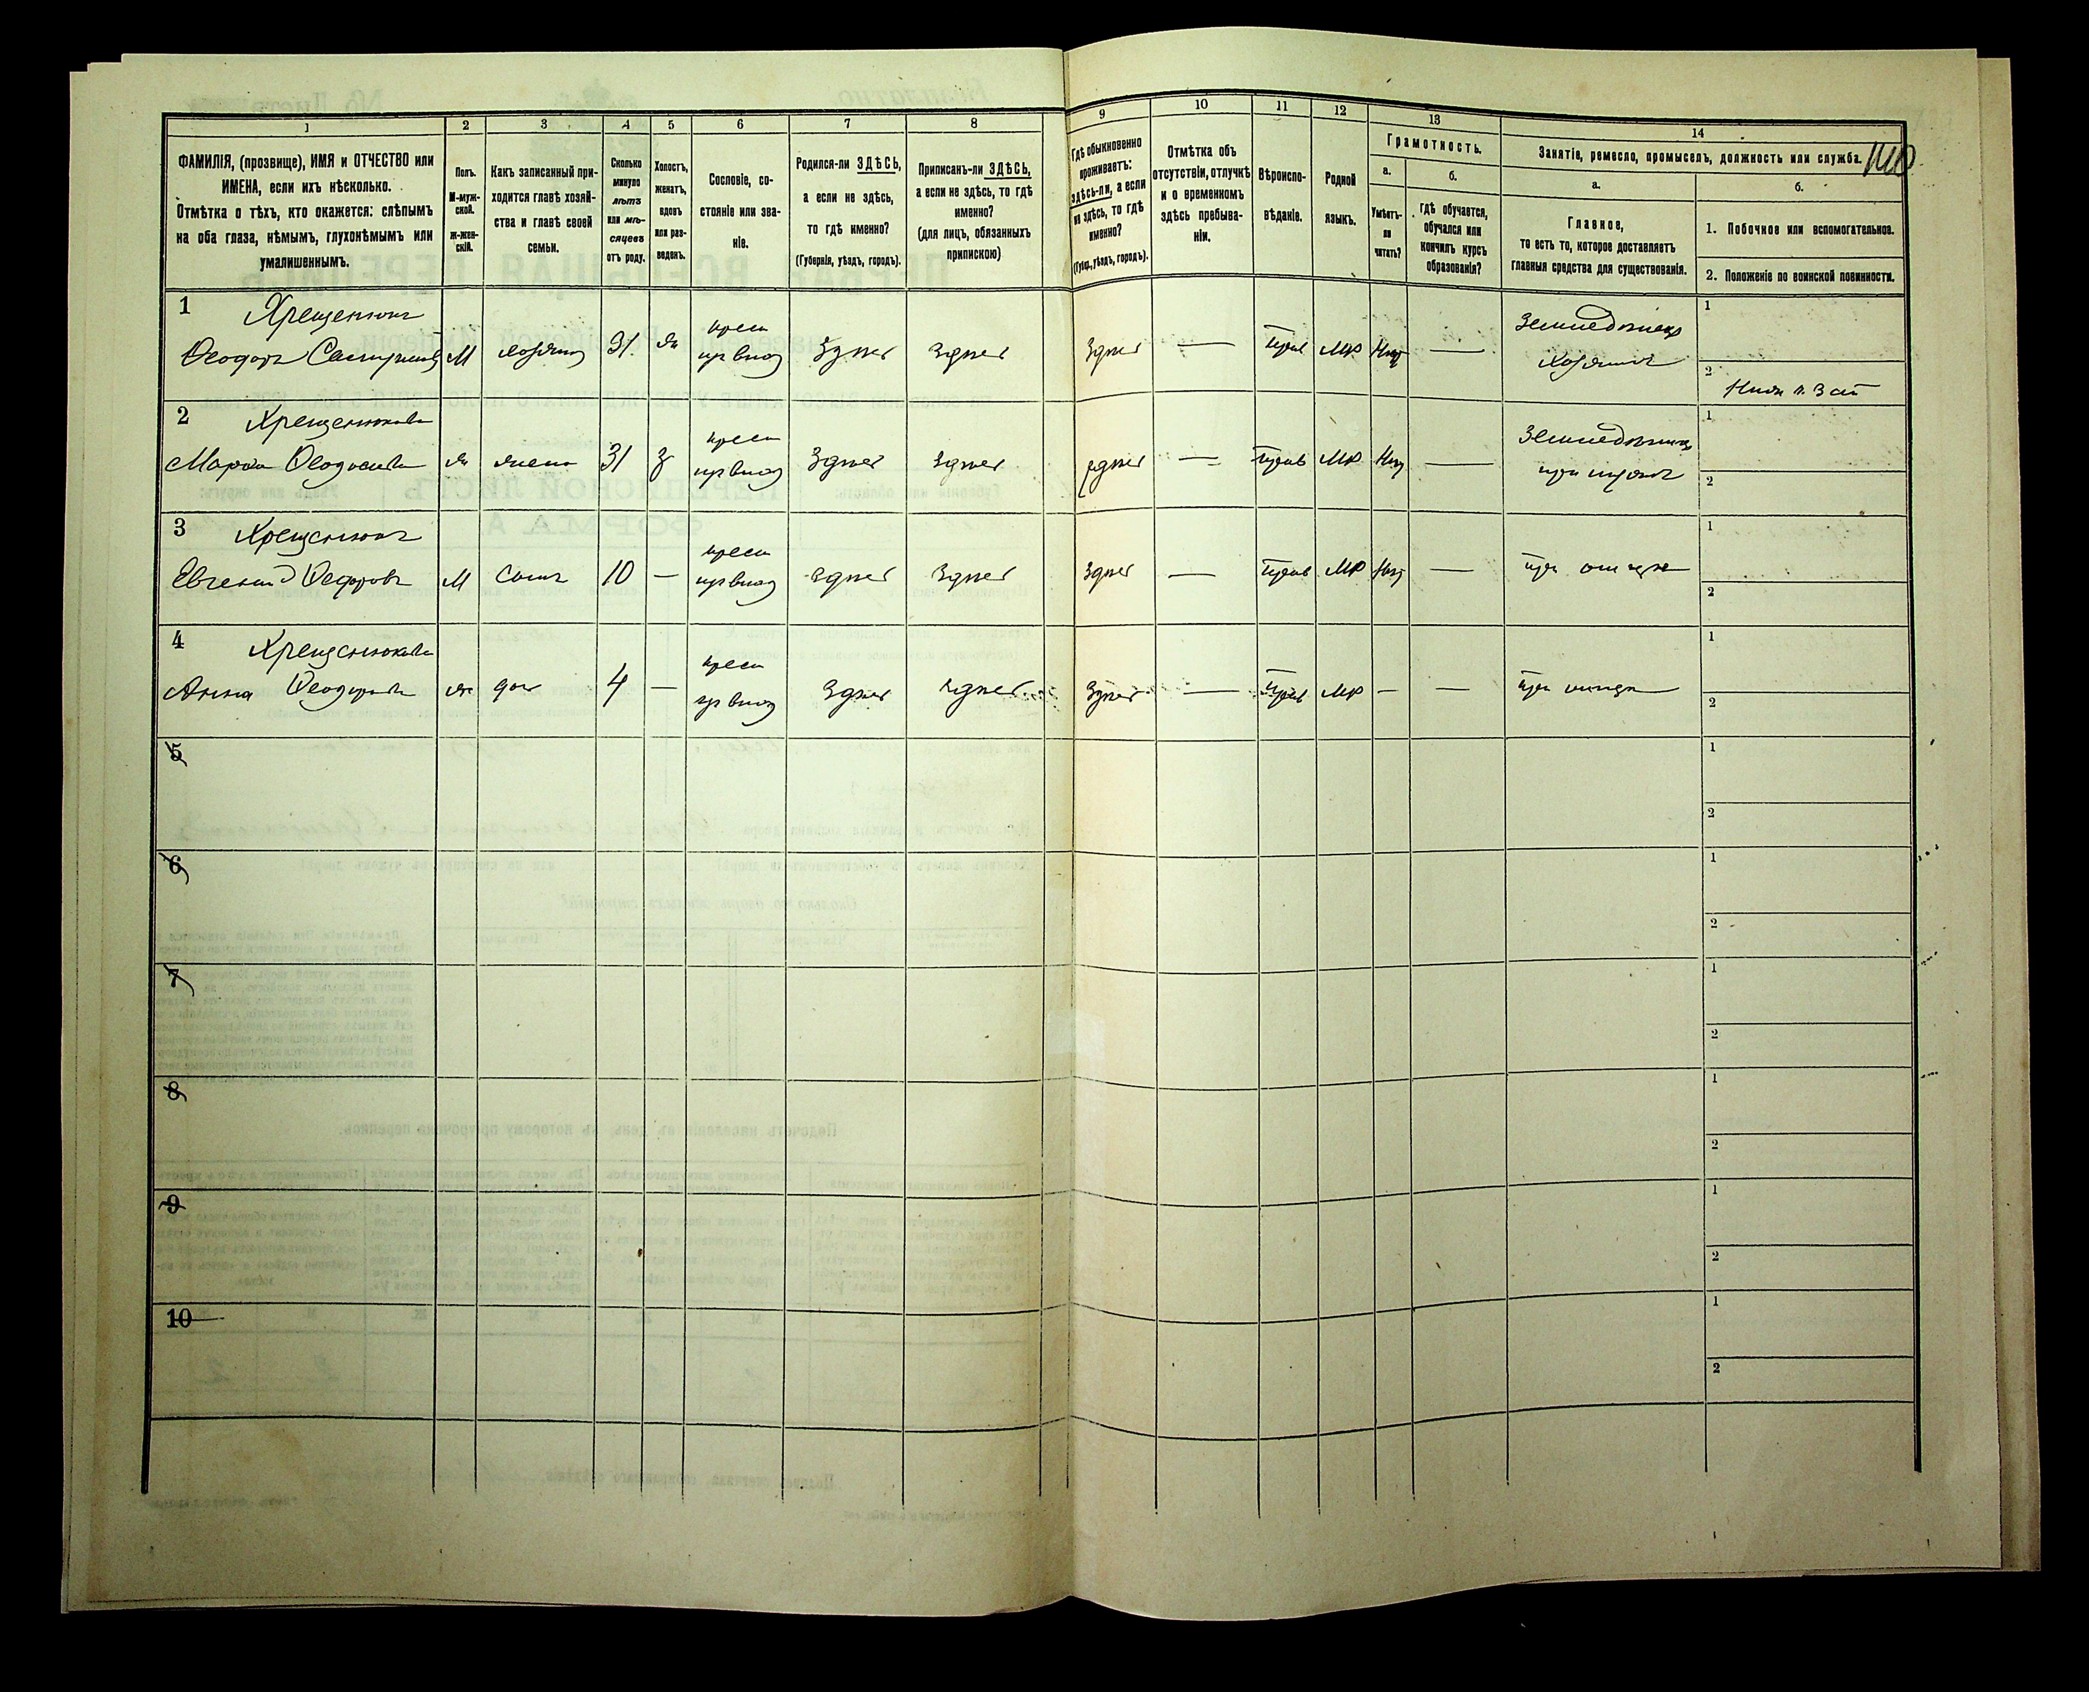 1 2 3 4 5 6 7 8 9 10 11 12 13 14
ФАМИЛІЯ, (прозвище), ИМЯ и ОТЧЕСТВО или
ИМЕНА, если ихъ нѣсколько.
Отмѣтка о тѣхъ, кто окажется: слѣпымъ
на оба глаза, нѣмымъ, глухонѣмымъ или
умалишеннымъ.
Полъ.
М-муж-
ской.
Ж-жен-
скій.
Какъ записанный при-
ходится главѣ хозяй-
ства и главѣ своей
семьи.
Сколько
минуло
лѣтъ
или мѣ-
сяцевъ
отъ роду.
Холостъ,
женатъ,
вдовъ
или раз-
веденъ.
Сословіе, со-
стояніе или зва-
ніе.
Родился-ли ЗДѢСЬ,
а если не здѣсь,
то гдѣ именно?
(Губернія, уѣздъ, городъ).
Приписанъ-ли ЗДѢСЬ,
а если не здѣсь, то гдѣ
именно?
(для лицъ, обязанныхъ
припискою)
Гдѣ обыкновенно
проживаетъ:
здѣсь-ли, а если
не здѣсь, то гдѣ
именно?
(Губ., уѣздъ, городъ).
Отмѣтка объ
отсутствіи, отлучкѣ
и о временномъ
здѣсь пребыва-
ніи.
Вѣроиспо-
вѣданіе.
Родной
языкъ.
Грамотность.
а.
Умѣетъ-
ли
читать?
б.
гдѣ обучается,
обучался или
кончилъ курсъ
образованія?
Занятіе, ремесло, промыселъ, должность или служба.
а.
Главное,
то есть то, которое доставляетъ
главныя средства для существованія.
б.
1. Побочное или вспомогательное.
2. Положеніе по воинской повинности.
1 Хрещенюкъ
Ѳеодоръ М хозяинъ 31 ж крест здѣсь здѣсь здѣсь — прав мр —
Земледѣлецъ
хозяинъ
1
2
2 Хрещенюкова
Марія Ѳеодосіева ж жена 31 з крест здѣсь здѣсь здѣсь — прав мр —
1
2
3 Хрещенюкъ
Евгеній Ѳедоровъ М сынъ 10 — крест здѣсь здѣсь здѣсь — прав мр — при отцѣ
1
2
4 Хрещенюкова
Анна Ѳеодорова ж доч 4 — крест здѣсь здѣсь здѣсь — прав мр — — при отцѣ
1
2
5
1
2
6
1
2
7
1
2
8
1
2
9
1
2
10
1
2